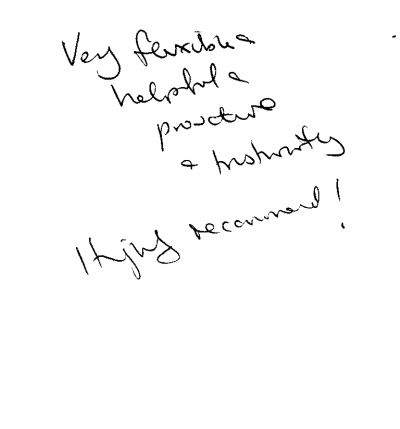 Very flexible &
helpful &
proactive
& trustworthy
Highly recommend!